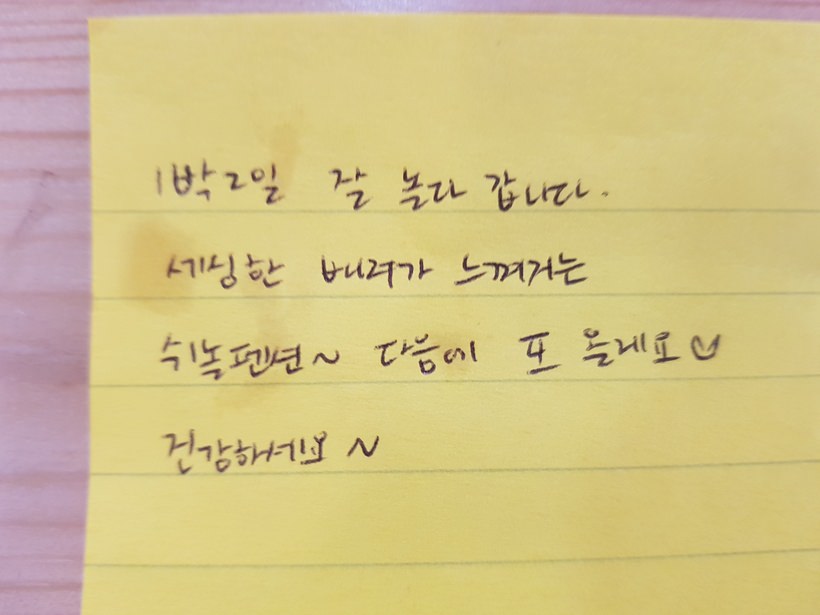 1박2일 잘 놀다 갑니다.
세심한 배려가 느껴지는
쉬놀펜션~ 다음에 또 올게요
건강하세요~